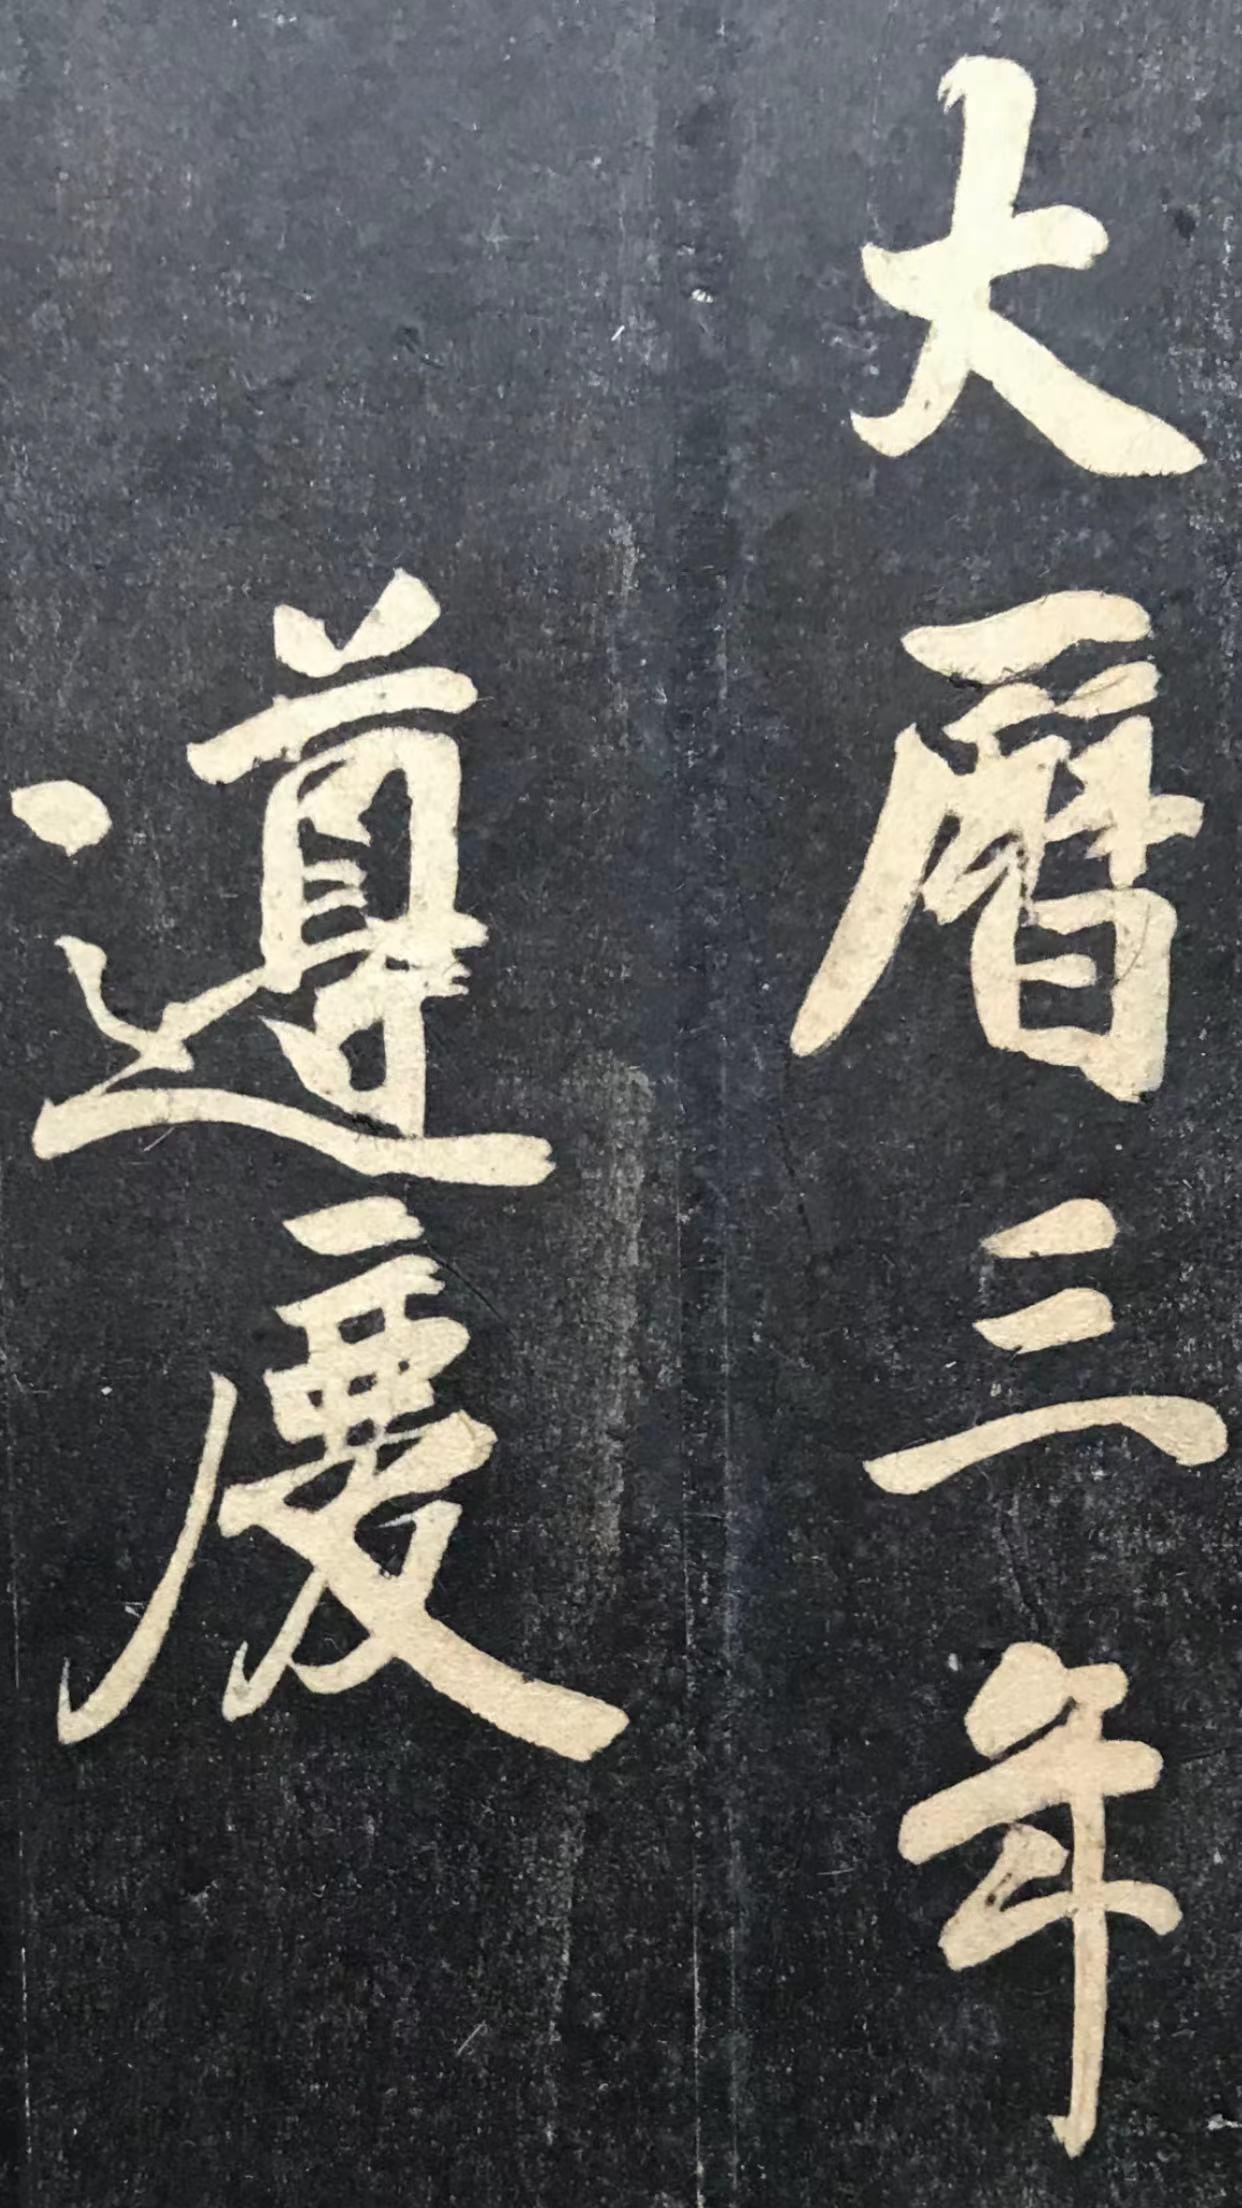 大曆三年
遵慶